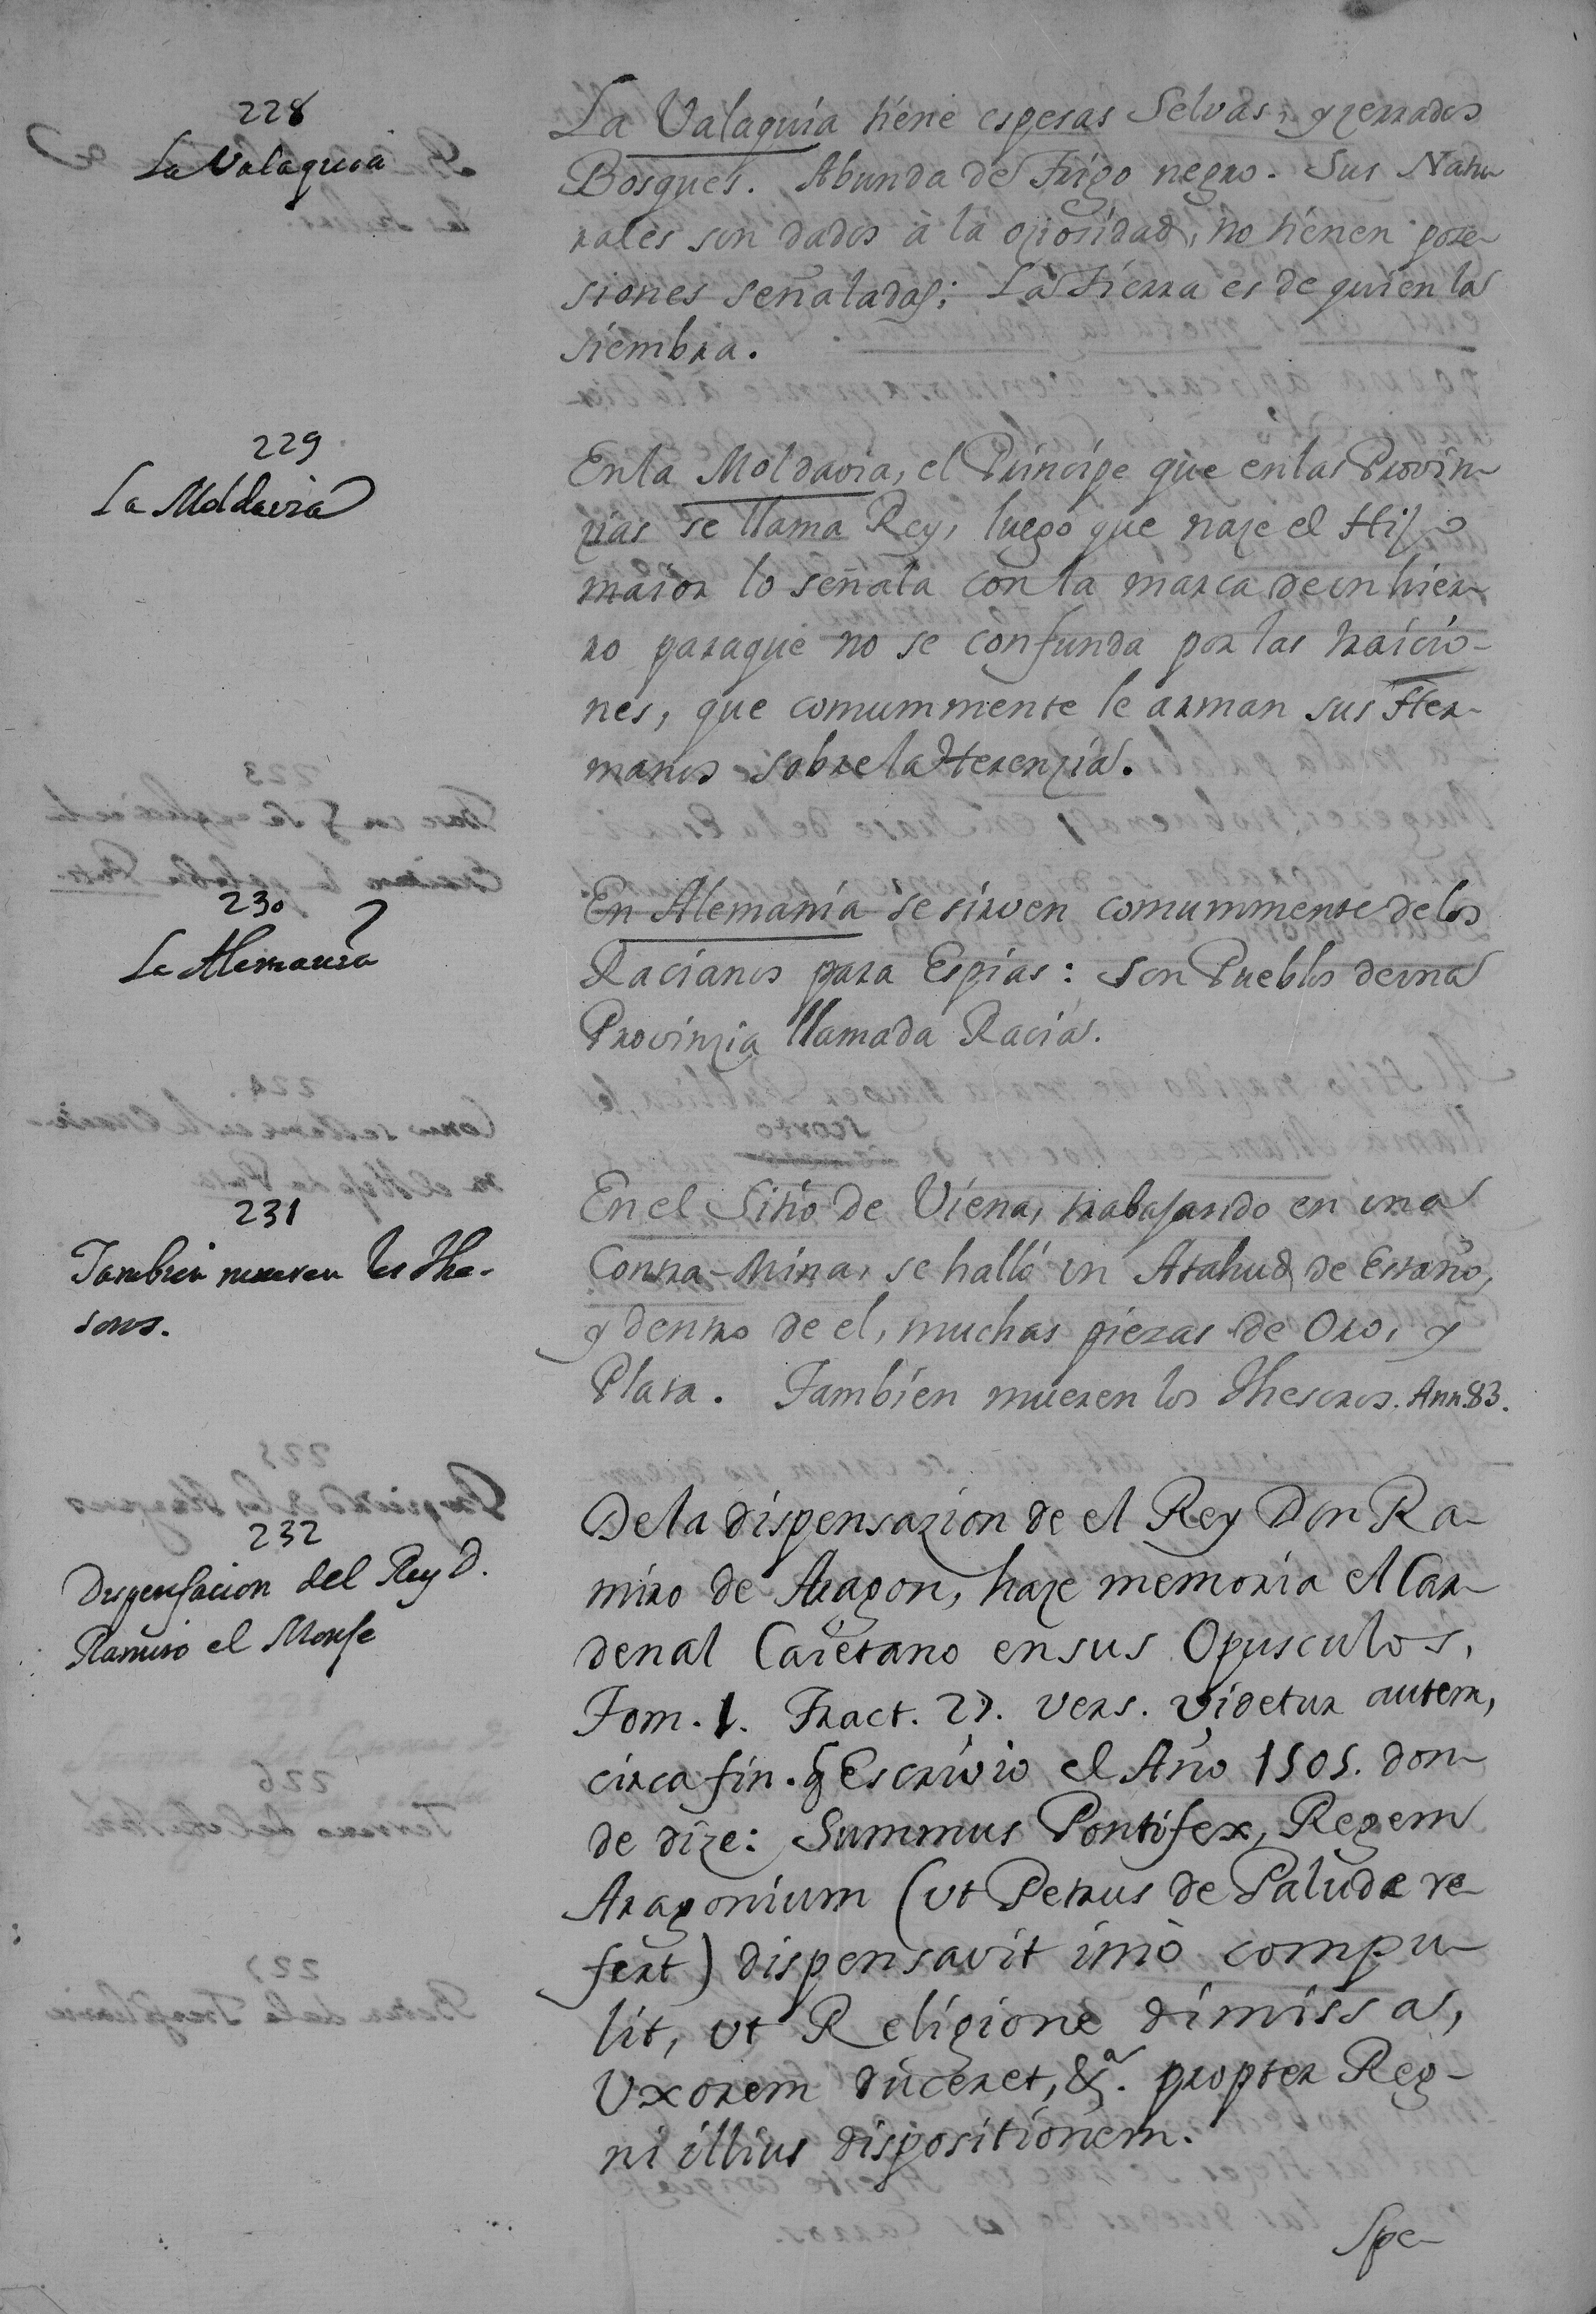 228
La Valaquia
La Valaquia tiene espesas Selvas, y zerrados
Bosques. Abunda de Trigo negro. Sus Natu
rales son dados à la oziosidad, no tienen pose-
siones señaladas; La Tierra es de quien la
siembra.
229
La Moldavia
En la Moldavia, el Principe que en las Provin-
zias se llama Rey, luego que naze el Hijo
maior lo señala con la marca de un hier-
ro paraque no se confunda por las traicio-
nes, que comummente le arman sus Her-
manos sobre la Herenzia.
230
La Alemania
En Alemania se sirven comummente de los
Racianos para Espias: son Pueblos de una
Provinzia llamada Racia.
231
Tambien mueren los The-
soros.
En el Sitio de Viena, trabajando en una
Contra-Mina, se halló un Atahud de Estaño,
y dentro de el, muchas piezas de Oro, y
Plata. Tambien mueren los Thesoros. Ann. 83.
232
Dispensacion del Rey D.
Ramiro el Monje
De la dispensazion de el Rey Don Ra-
miro de Aragon, haze memoria el Car-
denal Caietano en sus Opusculos,
Tom. 1. Tract. 27. vers. videtur autem,
circa fin. q Escrivio el Año 1505. don-
de dize: Summus Pontifex, Regem
Aragonium (ut Petrus de Palude re-
fert) dispensavit imò compu-
lit, ut Religione dimissa,
Uxorem duceret, &a. propter Reg-
ni illius dispositionem.
Spe-